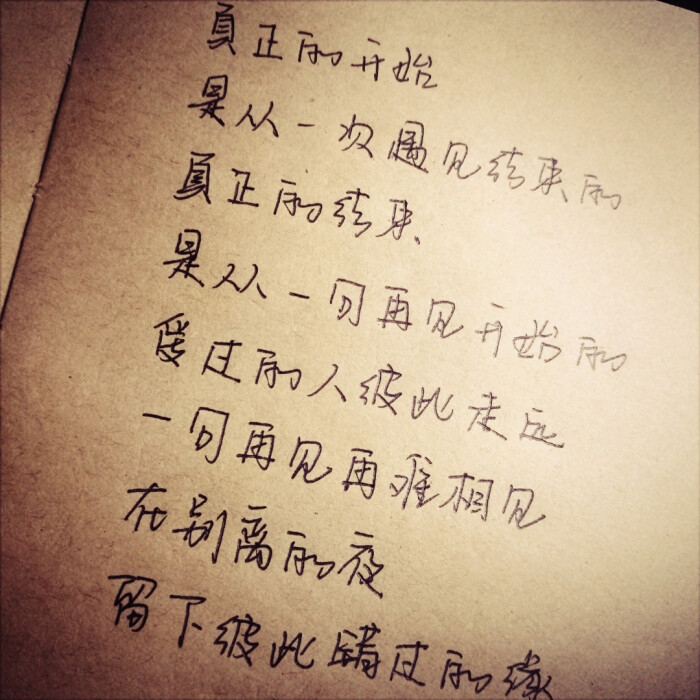 真正的开始
是从一次遇见结束的
真正的结束
是从一句再见开始的
爱过的人彼此走远
一句再见再难相见
在别离的夜
留下彼此错过的缘